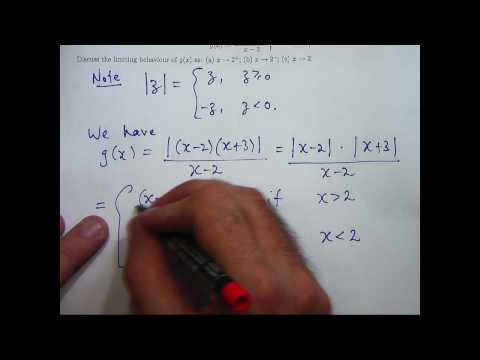 x-2
Discuss the limiting behaviour of g(x) as: (a) x → 2⁺; (b) x → 2⁻; (c) x → 2.
Note |z| = { z, z ≥ 0
-z, z < 0.
We have
g(x) = |(x-2)(x+3)| / x-2 = |x-2| · |x+3| / x-2
= { (x if x > 2
x < 2